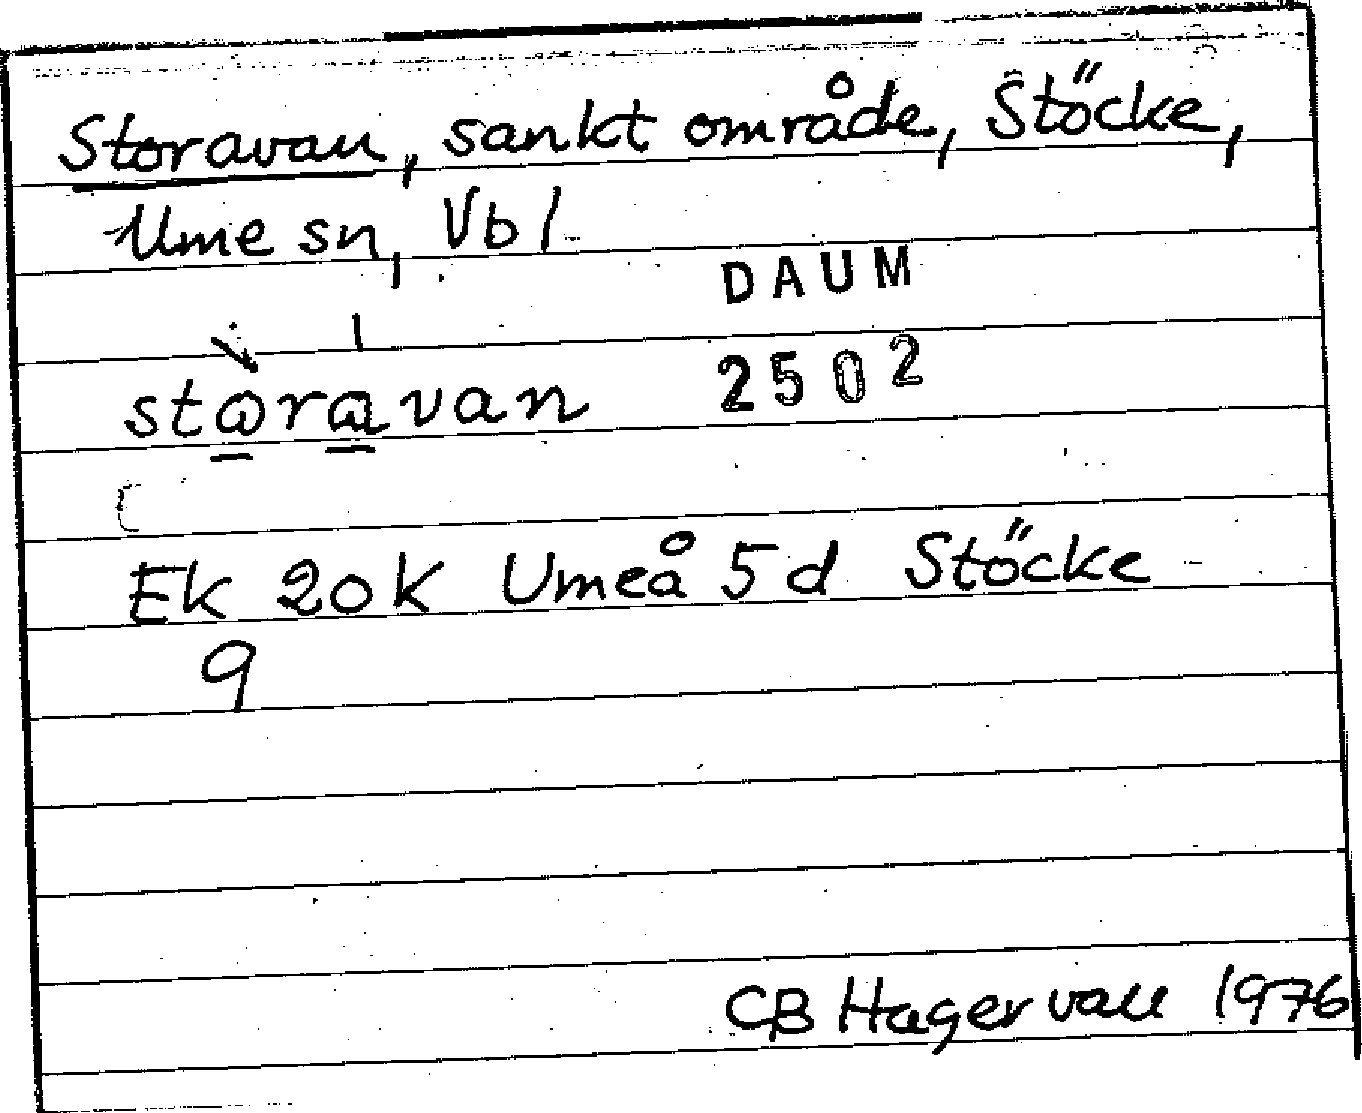 Storavan, sankt område, Stöcke,
Ume sn, Vb l
DAUM
storavan 2502
Ek 20K Umeå 5d Stöcke
9
CB Hagervall 1976